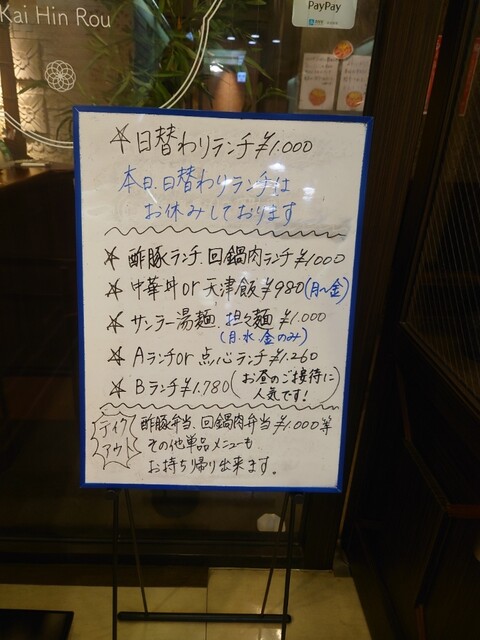 Kai Hin Rou
PayPay
☆日替わりランチ ¥1.000
本日、日替わりランチは
お休みしております
☆ 酢豚ランチ、回鍋肉ランチ ¥1000
☆ 中華丼 or 天津飯 ¥980 (月〜金)
☆ サンラー湯麺、担々麺 ¥1.000
(月.水.金のみ)
☆ Aランチ or 点心ランチ ¥1.260
☆ Bランチ ¥1.780 (お昼のご接待に
人気です!)
テイク
アウト
酢豚弁当、回鍋肉弁当 ¥1.000等
その他単品メニューも
お持ち帰り出来ます。